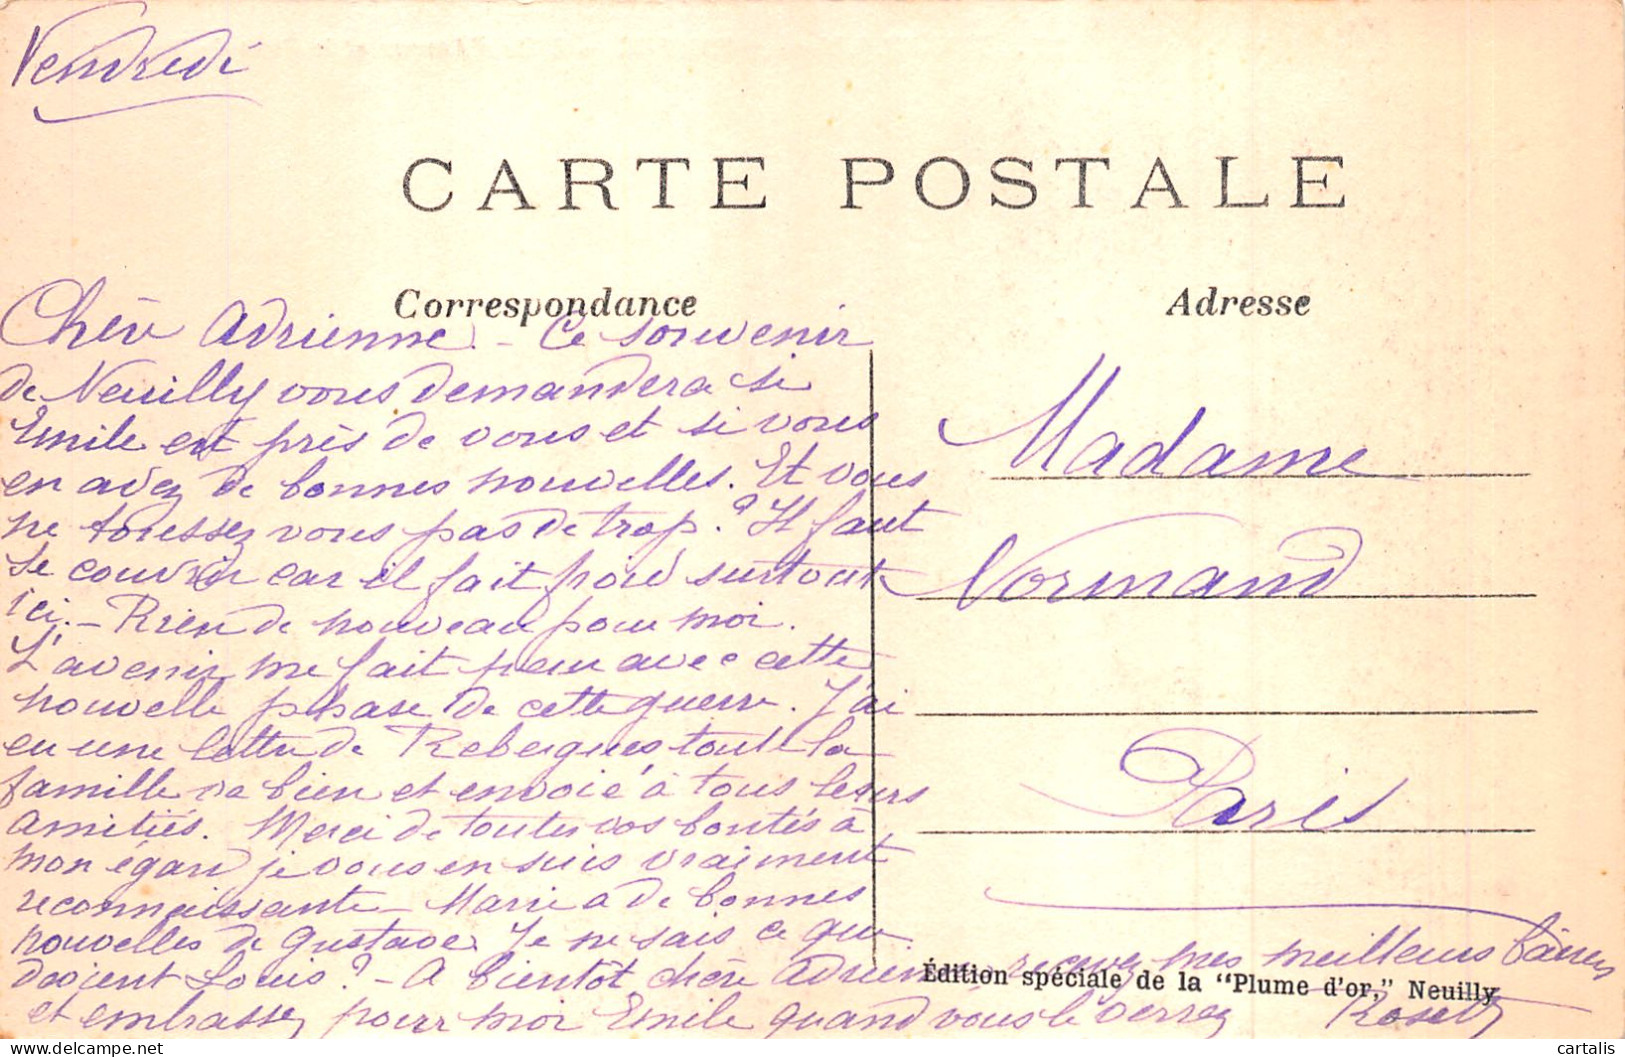 Vendredi
CARTE POSTALE
Correspondance
Adresse
Chère Adrienne. - Ce souvenir
de Neuilly vous demandera si
Emile est près de vous et si vous
en avez de bonnes nouvelles. Et vous
ne toussez vous pas de trop ? Il faut
se couvrir car il fait froid surtout
ici. - Rien de nouveau pour moi.
L'avenir me fait peur avec cette
nouvelle phase de cette guerre. J'ai
eu une lettre de Rebergues toute la
famille va bien et envoie à tous leurs
amitiés. Merci de toutes vos bontés à
mon égard je vous en suis vraiment
reconnaissante - Marie a de bonnes
nouvelles de Gustave. Je ne sais ce que
devient Louis ? - A bientôt chère Adrienne recevez mes meilleurs baisers
et embrassez pour moi Emile quand vous le verrez
Madame
Normand
Paris
Édition spéciale de la "Plume d'or," Neuilly
cartalis